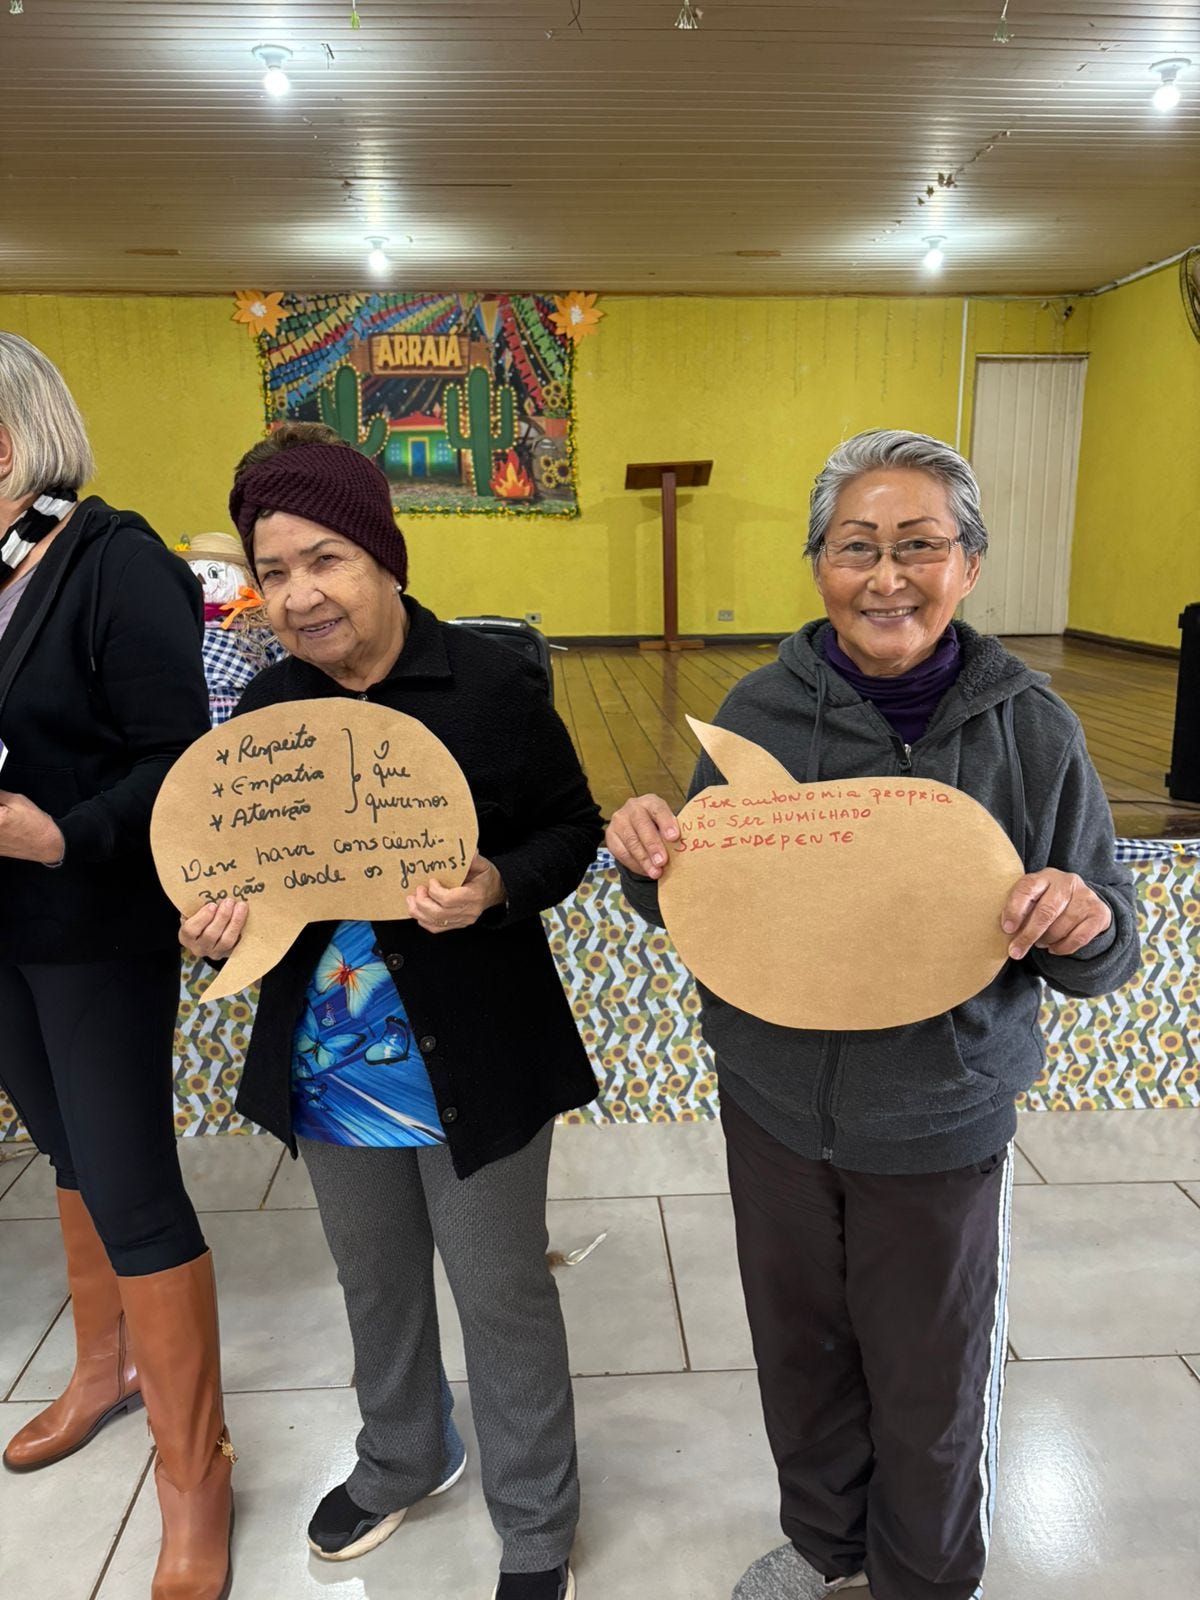 ARRAIÁ
* Respeito
* Empatia
* Atenção
} O que
queremos
Deve haver conscienti-
zação desde os jovens!
Ter autonomia propria
NÃO Ser HUMILHADO
Ser INDEPENTE